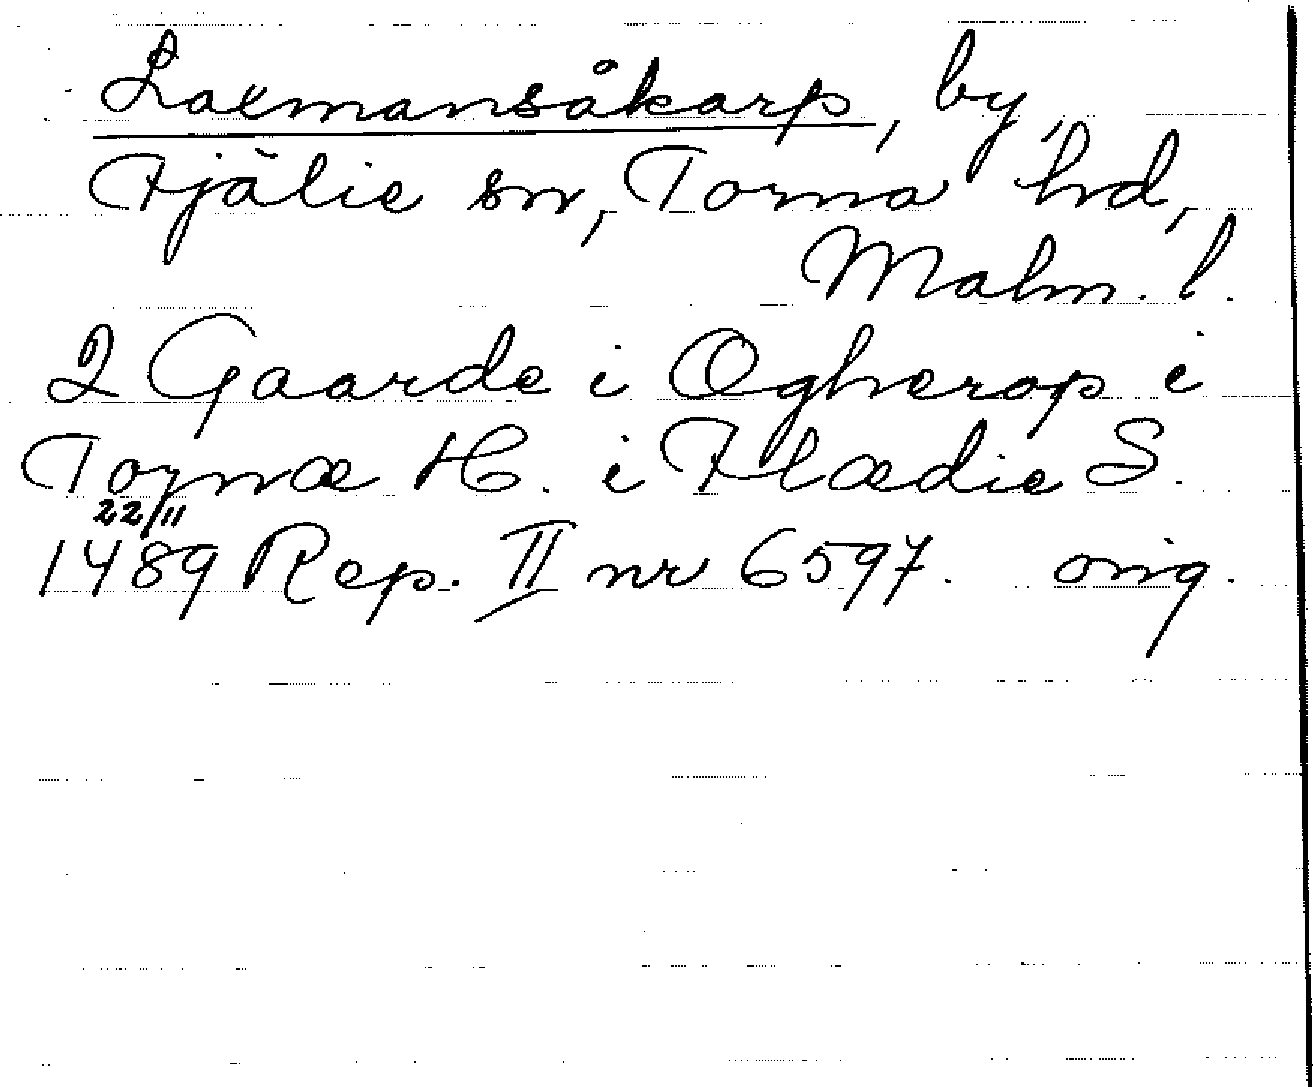 Laxmansåkarp, by,
Fjälie sn, Torna hd,
Malm. l.
2 Gaarde i Ogherop i
Tornæ H. i Flædie S.
22/11
1489 Rep. II nr 6597. orig.